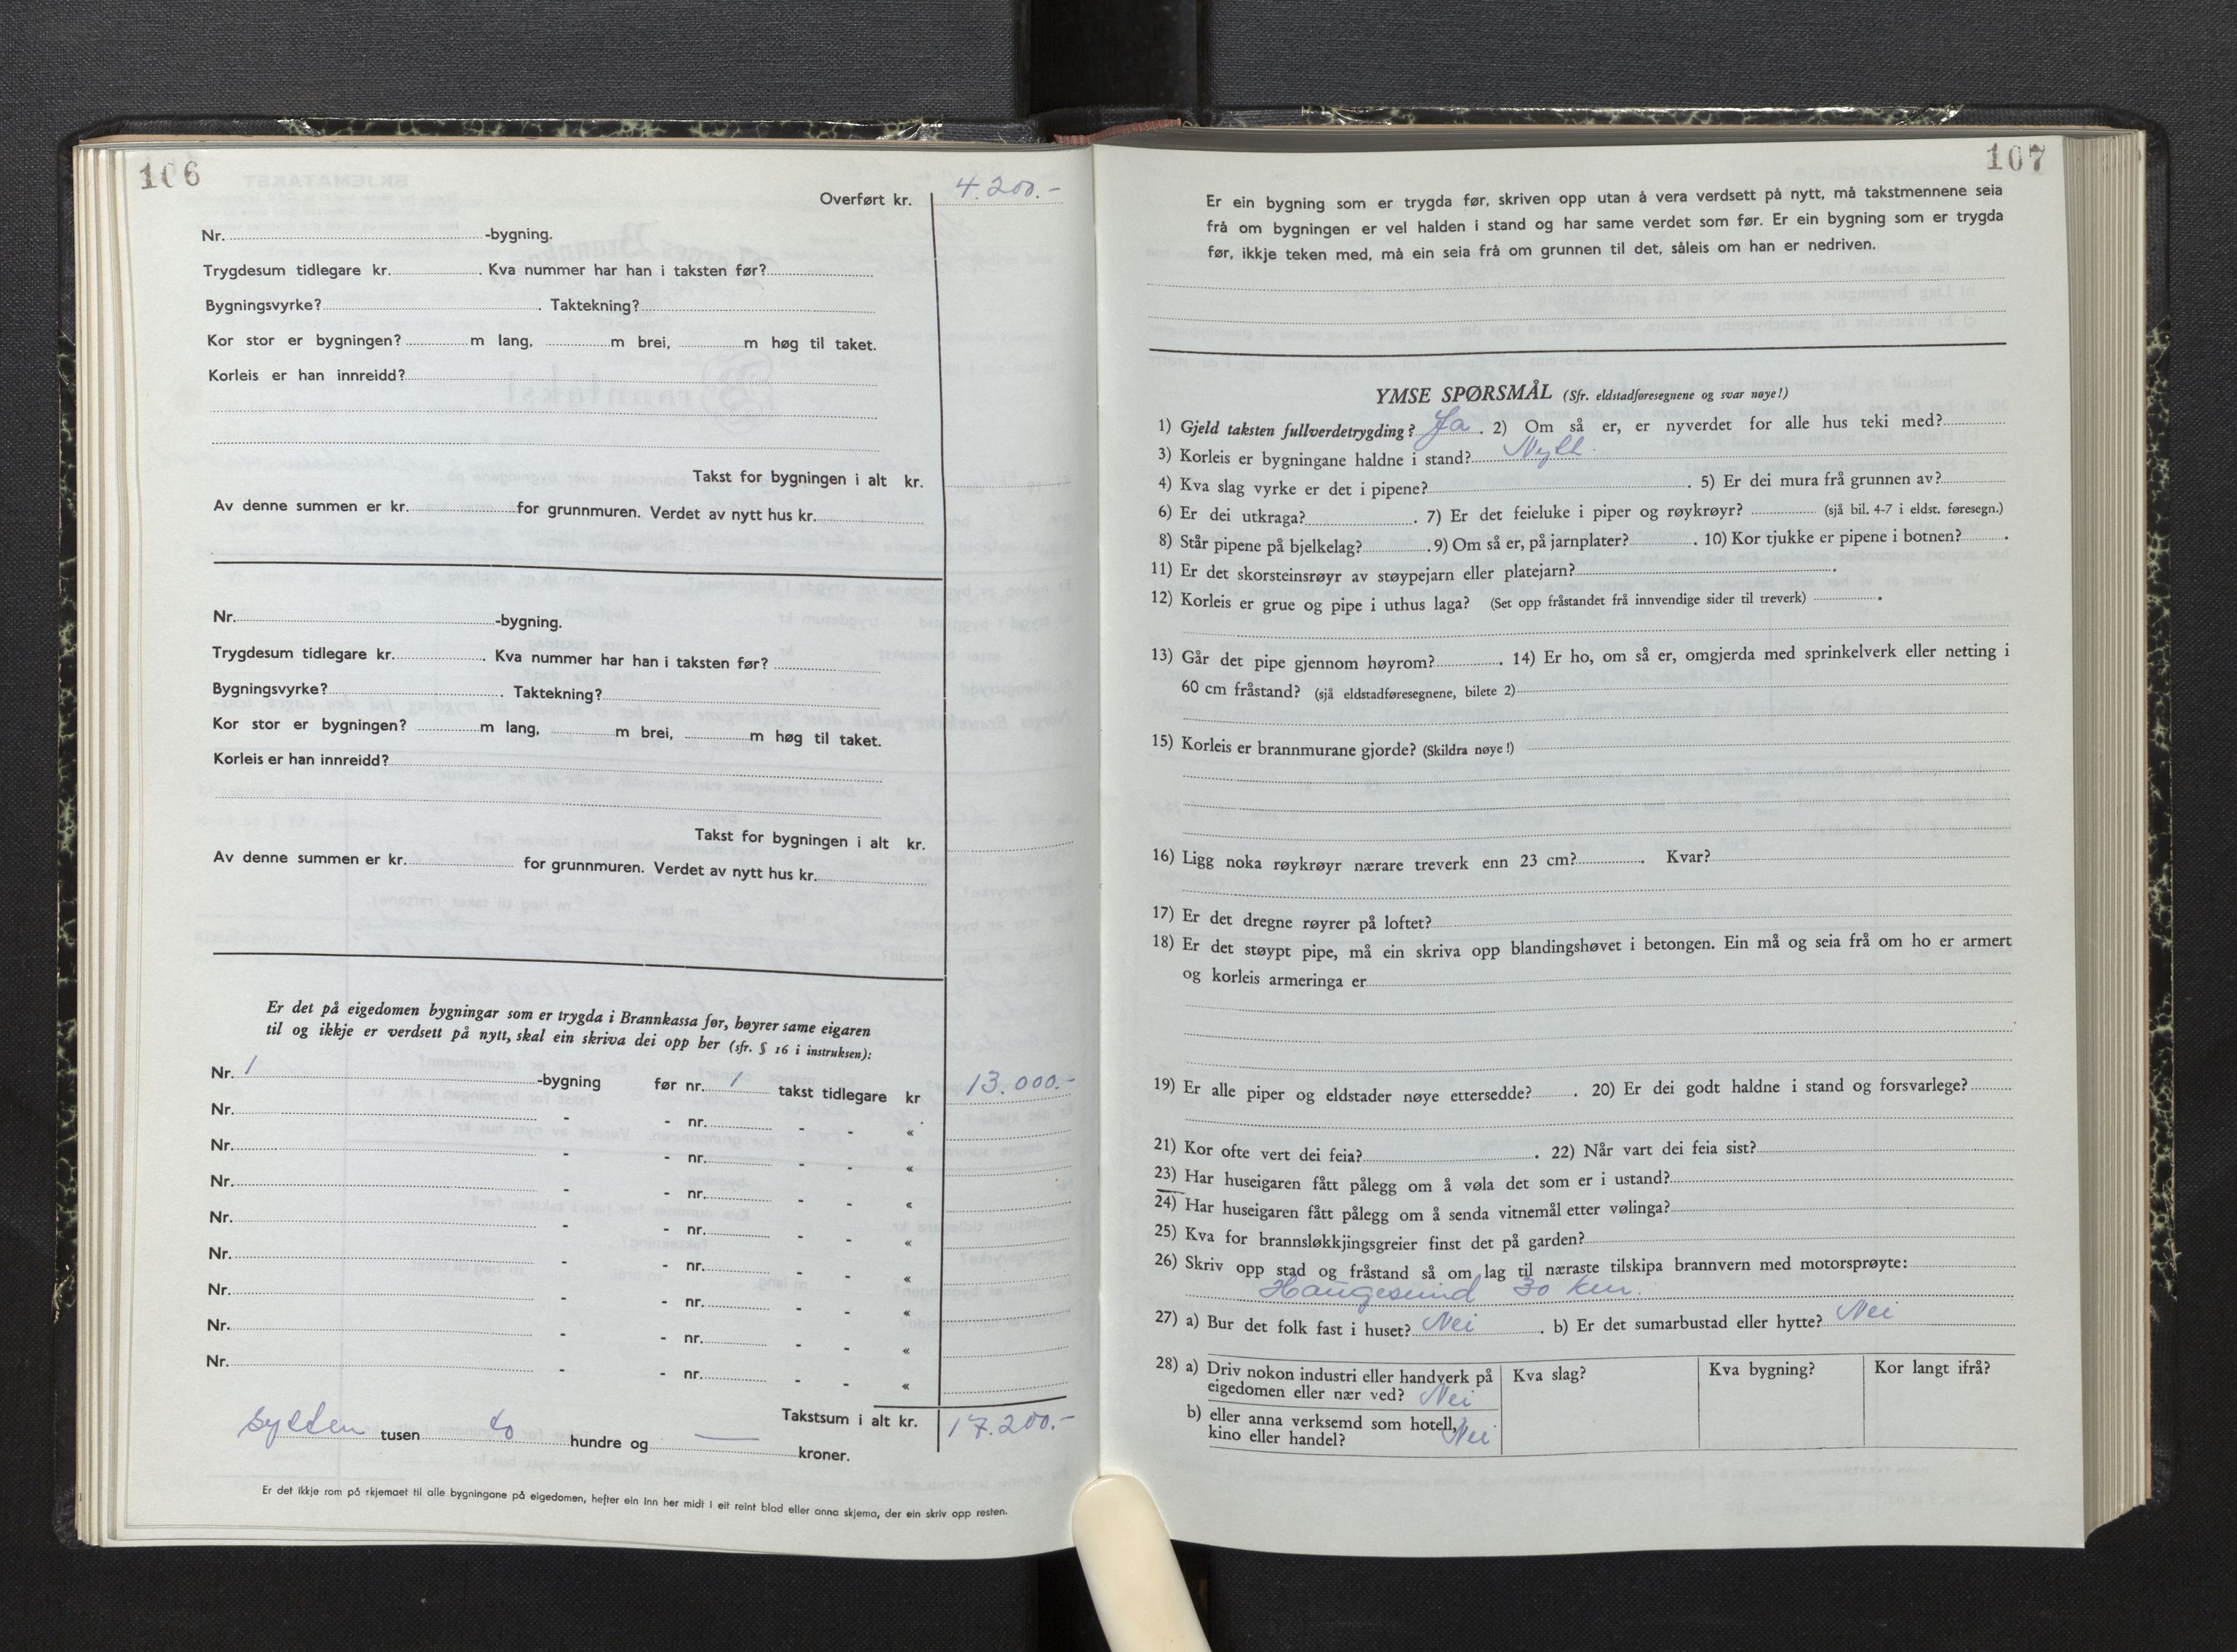 106
Overført kr. 4.200.-
Nr. -bygning.
Trygdesum tidlegare kr. . Kva nummer har han i taksten før?
Bygningsvyrke? . Taktekning?
Kor stor er bygningen? m lang, m brei, m høg til taket.
Korleis er han innreidd?
Takst for bygningen i alt kr.
Av denne summen er kr. for grunnmuren. Verdet av nytt hus kr.
Nr. -bygning.
Trygdesum tidlegare kr. . Kva nummer har han i taksten før?
Bygningsvyrke? . Taktekning?
Kor stor er bygningen? m lang, m brei, m høg til taket.
Korleis er han innreidd?
Takst for bygningen i alt kr.
Av denne summen er kr. for grunnmuren. Verdet av nytt hus kr.
Er det på eigedomen bygningar som er trygda i Brannkassa før, høyrer same eigaren
til og ikkje er verdsett på nytt, skal ein skriva dei opp her (sfr. § 16 i instruksen):
Nr. 1 -bygning før nr. 1 takst tidlegare kr 13.000.-
Nr. - - nr. - - «
Nr. - - nr. - - «
Nr. - - nr. - - «
Nr. - - nr. - - «
Nr. - - nr. - - «
Nr. - - nr. - - «
Nr. - - nr. - - «
Nr. - - nr. - - «
Takstsum i alt kr. 17.200.-
sytten tusen to hundre og — kroner.
Er det ikkje rom på skjemaet til alle bygningane på eigedomen, hefter ein inn her midt i eit reint blad eller anna skjema, der ein skriv opp resten.
107
Er ein bygning som er trygda før, skriven opp utan å vera verdsett på nytt, må takstmennene seia
frå om bygningen er vel halden i stand og har same verdet som før. Er ein bygning som er trygda
før, ikkje teken med, må ein seia frå om grunnen til det, såleis om han er nedriven.
YMSE SPØRSMÅL (Sfr. eldstadføresegnene og svar nøye!)
1) Gjeld taksten fullverdetrygding? Ja . 2) Om så er, er nyverdet for alle hus teki med?
3) Korleis er bygningane haldne i stand? Nytt.
4) Kva slag vyrke er det i pipene? . 5) Er dei mura frå grunnen av?
6) Er dei utkraga? . 7) Er det feieluke i piper og røykrøyr? (sjå bil. 4-7 i eldst. føresegn.)
8) Står pipene på bjelkelag? . 9) Om så er, på jarnplater? . 10) Kor tjukke er pipene i botnen? .
11) Er det skorsteinsrøyr av støypejarn eller platejarn? .
12) Korleis er grue og pipe i uthus laga? (Set opp fråstandet frå innvendige sider til treverk) .
13) Går det pipe gjennom høyrom? . 14) Er ho, om så er, omgjerda med sprinkelverk eller netting i
60 cm fråstand? (sjå eldstadføresegnene, bilete 2)
15) Korleis er brannmurane gjorde? (Skildra nøye!)
16) Ligg noka røykrøyr nærare treverk enn 23 cm? . Kvar?
17) Er det dregne røyrer på loftet?
18) Er det støypt pipe, må ein skriva opp blandingshøvet i betongen. Ein må og seia frå om ho er armert
og korleis armeringa er
19) Er alle piper og eldstader nøye ettersedde? . 20) Er dei godt haldne i stand og forsvarlege?
21) Kor ofte vert dei feia? . 22) Når vart dei feia sist?
23) Har huseigaren fått pålegg om å vøla det som er i ustand?
24) Har huseigaren fått pålegg om å senda vitnemål etter vølinga?
25) Kva for brannsløkkjingsgreier finst det på garden?
26) Skriv opp stad og fråstand så om lag til næraste tilskipa brannvern med motorsprøyte:
Haugesund 30 km.
27) a) Bur det folk fast i huset? Nei . b) Er det sumarbustad eller hytte? Nei
28) a) Driv nokon industri eller handverk på Kva slag? Kva bygning? Kor langt ifrå?
eigedomen eller nær ved? Nei
b) eller anna verksemd som hotell,
kino eller handel? Nei